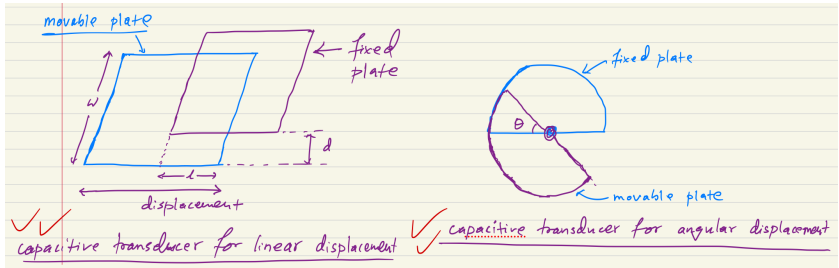 movable plate
fixed
plate
w
d
l
displacement
capacitive transducer for linear displacement
fixed plate
θ
movable plate
capacitive transducer for angular displacement